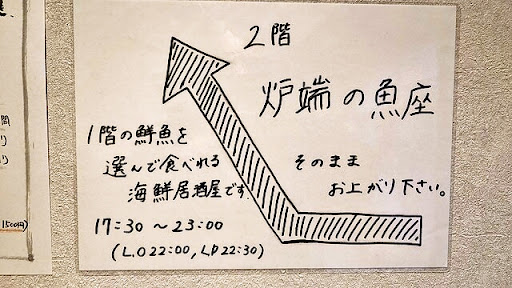 2階
炉端の魚座
1階の鮮魚を
選んで食べれる
海鮮居酒屋です
17:30~23:00
(L.O 22:00, LD 22:30)
そのまま
お上がり下さい。
1500円